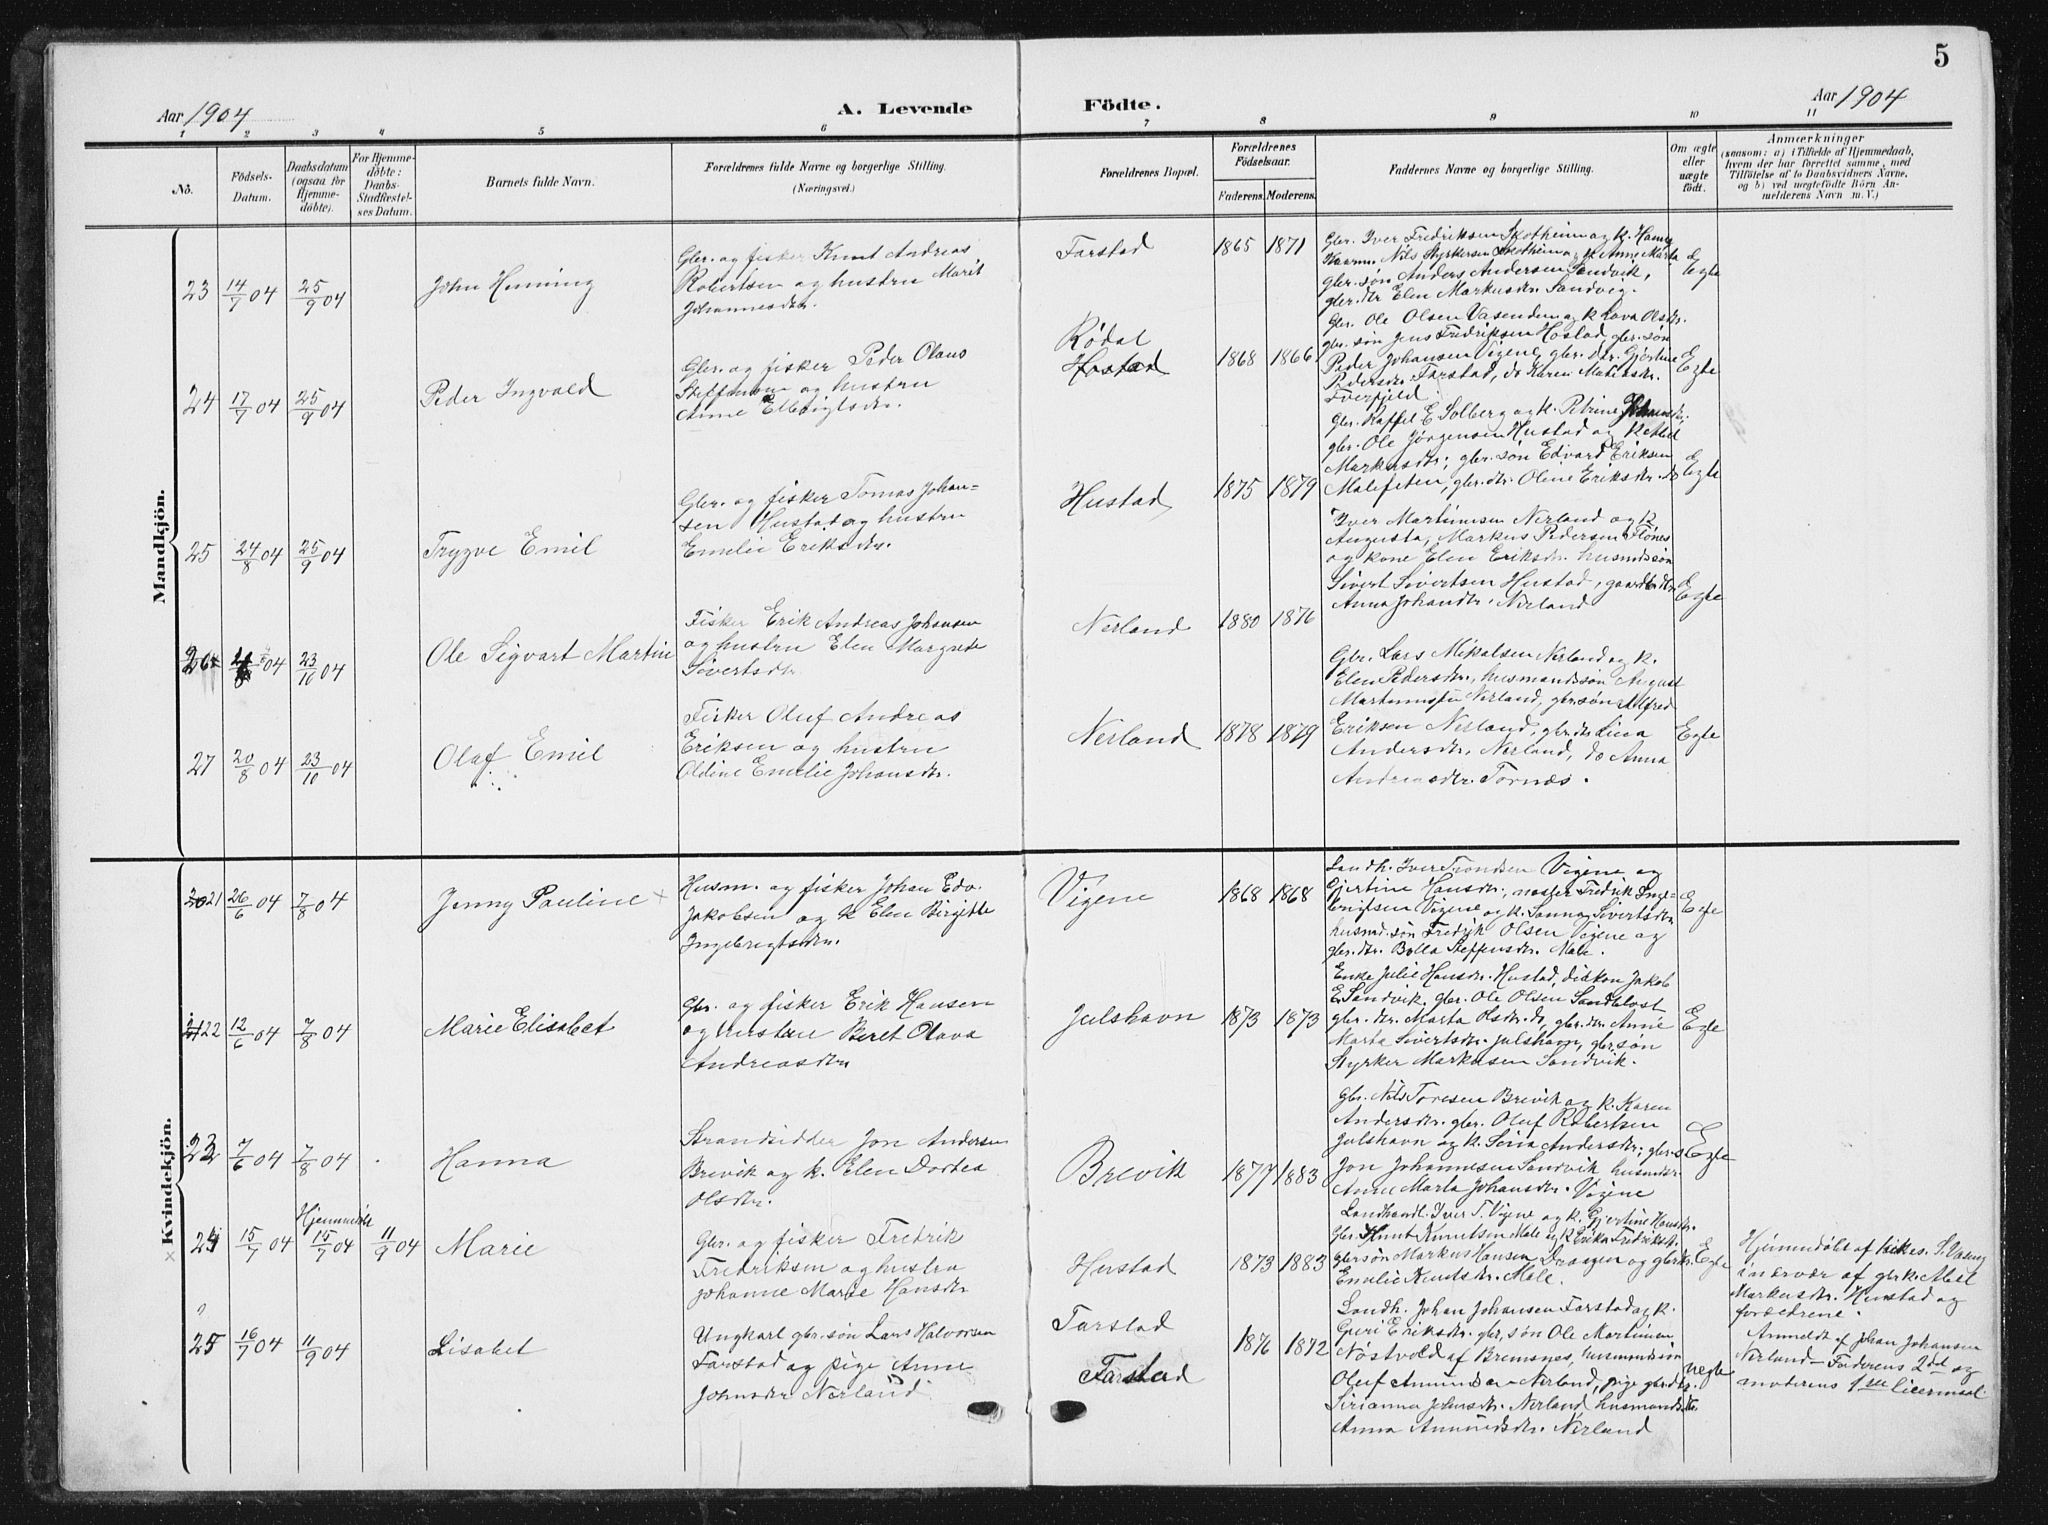 5
Aar 1904
A. Levende
Födte.
Aar 1904
1 2 3 4 5 6 7 8 9 10 11
Nö.
Födsels-
Datum.
Daabsdatum
(ogsaa for
Hjemme-
döbte).
For Hjemme-
döbte:
Daabs-
Stadfæstel-
ses Datum.
Barnets fulde Navn.
Forældrenes fulde Navne og borgerlige Stilling.
(Næringsvei.)
Forældrenes Bopæl.
Forældrenes
Födselsaar.
Faderens. Moderens.
Faddernes Navne og borgerlige Stilling.
Om ægte
eller
uægte
födt.
Anmærkninger
(saasom: a) i Tilfælde af Hjemmedaab,
hvem der har forrettet samme, med
Tilföielse af to Daabsvidners Navne,
og b) ved uægtefödte Börn An-
melderens Navn m. V.)
Mandkjön.
23 14/7 04 25/9 04
John Henning
Gbr. og fisker Knut Andreas
Robertsen og hustru Marit
Johannesdtr.
Farstad
1865 1871
Gbr. Iver Fredriksen Skotheim og k. Hanna
Nils Styrkersen Skotheim og k. Anne Marta
gbr. søn Anders Andersen Sandvik,
gbr. dtr Elen Markusdtr. Sandvig.
Egte
24 17/7 04 25/9 04
Peder Ingvald
Gbr. og fisker Peder Olaus
Steffensen og hustru
Anne
Rødal
Hustad
1868 1866
Gbr. Ole Olsen Vasenden og k Lava Olsdtr.
gbr. søn Jens Fredriksen Hostad, gbr. søn
Peder Johansen Vigene, gbr. dtr. Gjertine
Pedersdtr. Farstad, do Karen
Tverfjeld.
Egte
25 24/8 04 25/9 04
Trygve Emil
Gbr. og fisker Tomas Johan-
sen Hustad og hustru
Emelie Eriksdtr.
Hustad
1875 1879
Gbr. Kaffel E Solberg og k. Petrine
gbr. Ole Jørgensen Hustad og k Abel
Markusdtr; gbr. søn Edvard Eriksen
Malefeten, gbr. dtr. Oline Eriksdtr. do
Egte
26 04 23/10 04
Ole Sigvart Martin
Fisker Erik Andreas Johansen
og hustru Elen Margrete
Sivertsdtr
Nerland
1880 1876
Iver Martinusen Nerland og k
Augusta, Markus Pedersen Flönes
og kone Elen Eriksdtr. husmdssøn
Sivert Sivertsen Hustad, gaardbr.dtr.
Anna Johandtr. Nerland
Egte
27 20/8 04 23/10 04
Olaf Emil
Fisker Oluf Andreas
Eriksen og hustru
Oldine Emelie Johansdtr.
Nerland
1878 1879
Gbr. Lars Mikalsen Nerland og k.
Elen Pedersdtr., husmandssøn August
Martinussen Nerland, gbr. søn Alfred
Eriksen Nerland, gbr. dtr Lina
Andersdtr. Nerland, do Anna
Andreasdtr. Tornæs.
Egte
Kvindekjön.
20 21 26/6 04 7/8 04
Jenny Pauline
Husm. og fisker Johan Edv.
Jakobsen og k Elen Birgitte
Ingebrigtsdtr.
Vigene
1868 1868
Landh. Iver Trondsen Vigene og
Gjertine Hansdtr., Fredrik Inge-
brigtsen Vigene og k. Sanna Sivertsdtr.
husmd. søn Fredrik Olsen Vigene og
gbr. dtr. Bolla Steffensdtr. Male.
Egte
21 22 12/6 04 7/8 04
Marie Elisabet
Gbr. og fisker Erik Hansen
og hustru Beret Olava
Andreasdtr.
Julshavn
1873 1873
Enke Julie Hansdtr. Hustad, diakon Jakob
E. Sandvik, gbr. Ole Olsen Sandblost
gbr. dtr. Marta Olsdtr. do, gbr. dtr. Anne
Marta Sivertsdtr. Julshavn, gbr. søn
Styrker Markusen Sandvik.
Egte
23 7/6 04 7/8 04
Hanna
Strandsidder Jon Andersen
Brevik og k. Elen Dortea
Olsdtr.
Brevik
1877 1883
Gbr. Nils Toresen Brevik og k. Karen
Andersdtr. gbr. Oluf Robertsen
Julshavn og k. Seria Andersdtr; gbr. s
Jon Johannesen Sandvik husmdtr
Anne Marta Johansdtr. Vigene
Egte
24 15/7 04
Hjemmedöbt
15/7 04 11/9 04
Marie
Gbr. og fisker Fredrik
Fredriksen og hustru
Johanne Marie Hansdtr
Hustad
1873 1883
Landhandl. Iver T. Vigene og k. Gjertine Hansdtr.
Gbr. Knut Knutsen Male og k Erika Fredriksd.
gbr søn Markus Hansen Draagen og gbr dtr.
Emelie Knutsdtr. Male.
Egte
Hjemmedøbt af S. Vaseng
i nærvær af gbr k. Abel
Markusdtr. Hustad og
foreldrene.
25 16/7 04 11/9 04
Lisabet
Ungkarl gbr. søn Lars Halvorsen
Farstad og pige Anne
Johnsdtr Nerland
Farstad
Farstad
1876 1872
Landh. Johan Johansen Farstad og k.
Guri Eriksdtr. gbr. søn Ole Martinsen
Nøstvold af Bremsnes, husmandssøn
Oluf Amundsen Nerland, pige gbr dtr.
Sirianna Johnsdtr. Nerland husmandsdtr
Anna Amundsdtr. Nerland
uegte
Anmeldt af Johan Johansen
Nerland – Faderens 2det og
moderens 1ste leiermaal